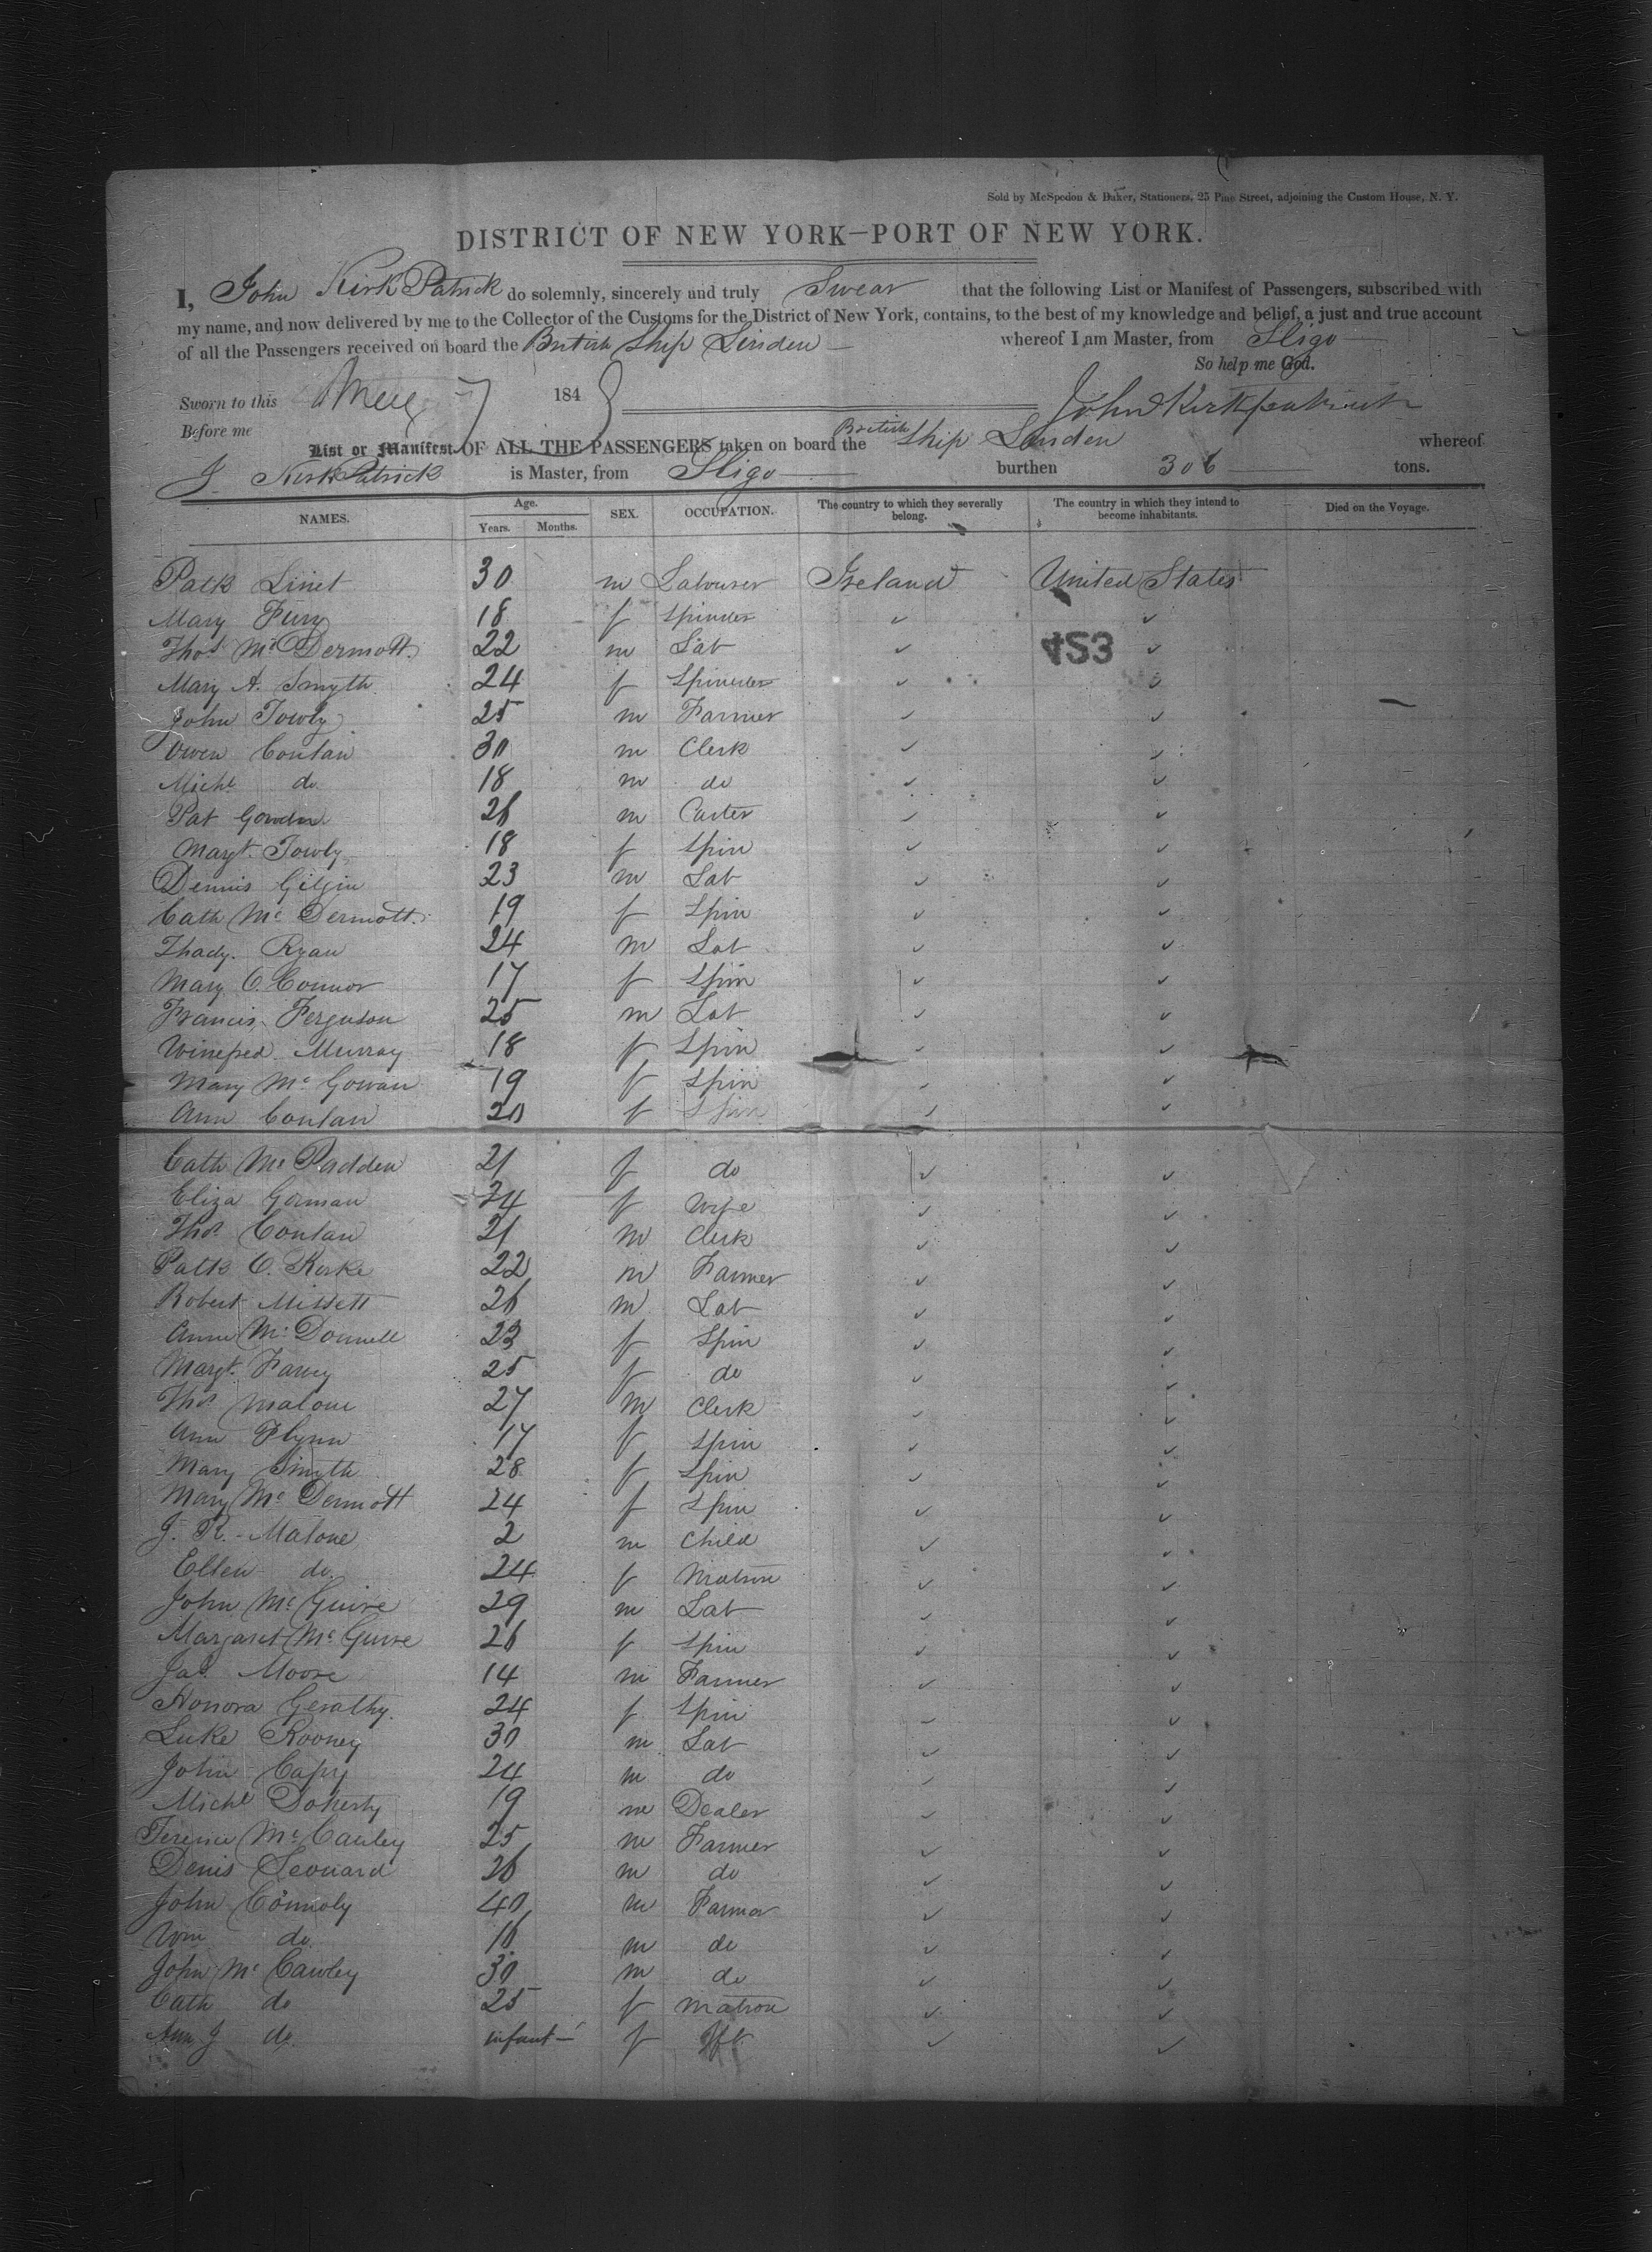 Sold by McSpedon & Baker, Stationers, 25 Pine Street, adjoining the Custom House, N. Y.
DISTRICT OF NEW YORK—PORT OF NEW YORK.
I, John KirkPatrick do solemnly, sincerely and truly Swear that the following List or Manifest of Passengers, subscribed with
my name, and now delivered by me to the Collector of the Customs for the District of New York, contains, to the best of my knowledge and belief, a just and true account
of all the Passengers received on board the British Ship Linden — whereof I am Master, from Sligo
So help me God.
Sworn to this 7 184
John Kirkpatrick
Before me
List or Manifest OF ALL THE PASSENGERS taken on board the British Ship Linden whereof
J KirkPatrick is Master, from Sligo burthen 306 tons.
NAMES. Age. Years. Months. SEX. OCCUPATION. The country to which they severally belong. The country in which they intend to become inhabitants. Died on the Voyage.
Patk Linet 30 m Labourer Ireland United States
Mary Fury 18 f Spinder ✓ ✓
Thos McDermott 22 m Lab ✓ 453 ✓
Mary A. Smyth 24 f Spinder ✓ ✓
John Towly 25 m Farmer ✓ ✓ —
Owen Conlan 30 m Clerk ✓ ✓
Michl do 18 m do ✓ ✓
Pat 26 m Carter ✓ ✓
Margt. Towly 18 f Spin ✓ ✓
Dennis Gilgin 23 m Lab ✓ ✓
Cath McDermott 19 f Spin ✓ ✓
Thady Ryan 24 m Lab ✓ ✓
Mary O.Connor 17 f Spin ✓ ✓
Francis Ferguson 25 m Lab ✓ ✓
Winefred Murray 18 f Spin ✓ ✓
Mary McGowan 19 f Spin ✓ ✓
Ann Conlan 20 f Spin ✓ ✓
Cath McPadden 21 f do ✓ ✓
Eliza Gorman 24 f Wife ✓ ✓
Thos Conlan 21 m Clerk ✓ ✓
Patk O.Rorke 22 m Farmer ✓ ✓
Robert Missett 26 m Lab ✓ ✓
Anne McDonnell 23 f Spin ✓ ✓
Margt. 25 f do ✓ ✓
Thos Malone 27 m Clerk ✓ ✓
Ann Flynn 17 f Spin ✓ ✓
Mary Smyth 28 f Spin ✓ ✓
Mary McDermott 24 f Spin ✓ ✓
J. R. Malone 2 m Child ✓ ✓
Ellen do 24 f Matron ✓ ✓
John McGuire 29 m Lab ✓ ✓
Margaret McGuire 26 f Spin ✓ ✓
Jas. Moore 14 m Farmer ✓ ✓
Honora Gerathy 24 f Spin ✓ ✓
Luke Rooney 30 m Lab ✓ ✓
John 24 m do ✓ ✓
Michl Doherty 19 m Dealer ✓ ✓
Terence McCauley 25 m Farmer ✓ ✓
Denis Leonard 26 m do ✓ ✓
John Connoly 40 m Farmer ✓ ✓
Wm do 16 m do ✓ ✓
John McCawley 30 m do ✓ ✓
Cath do 25 f Matron ✓ ✓
Ann J do infant — f ✓ ✓